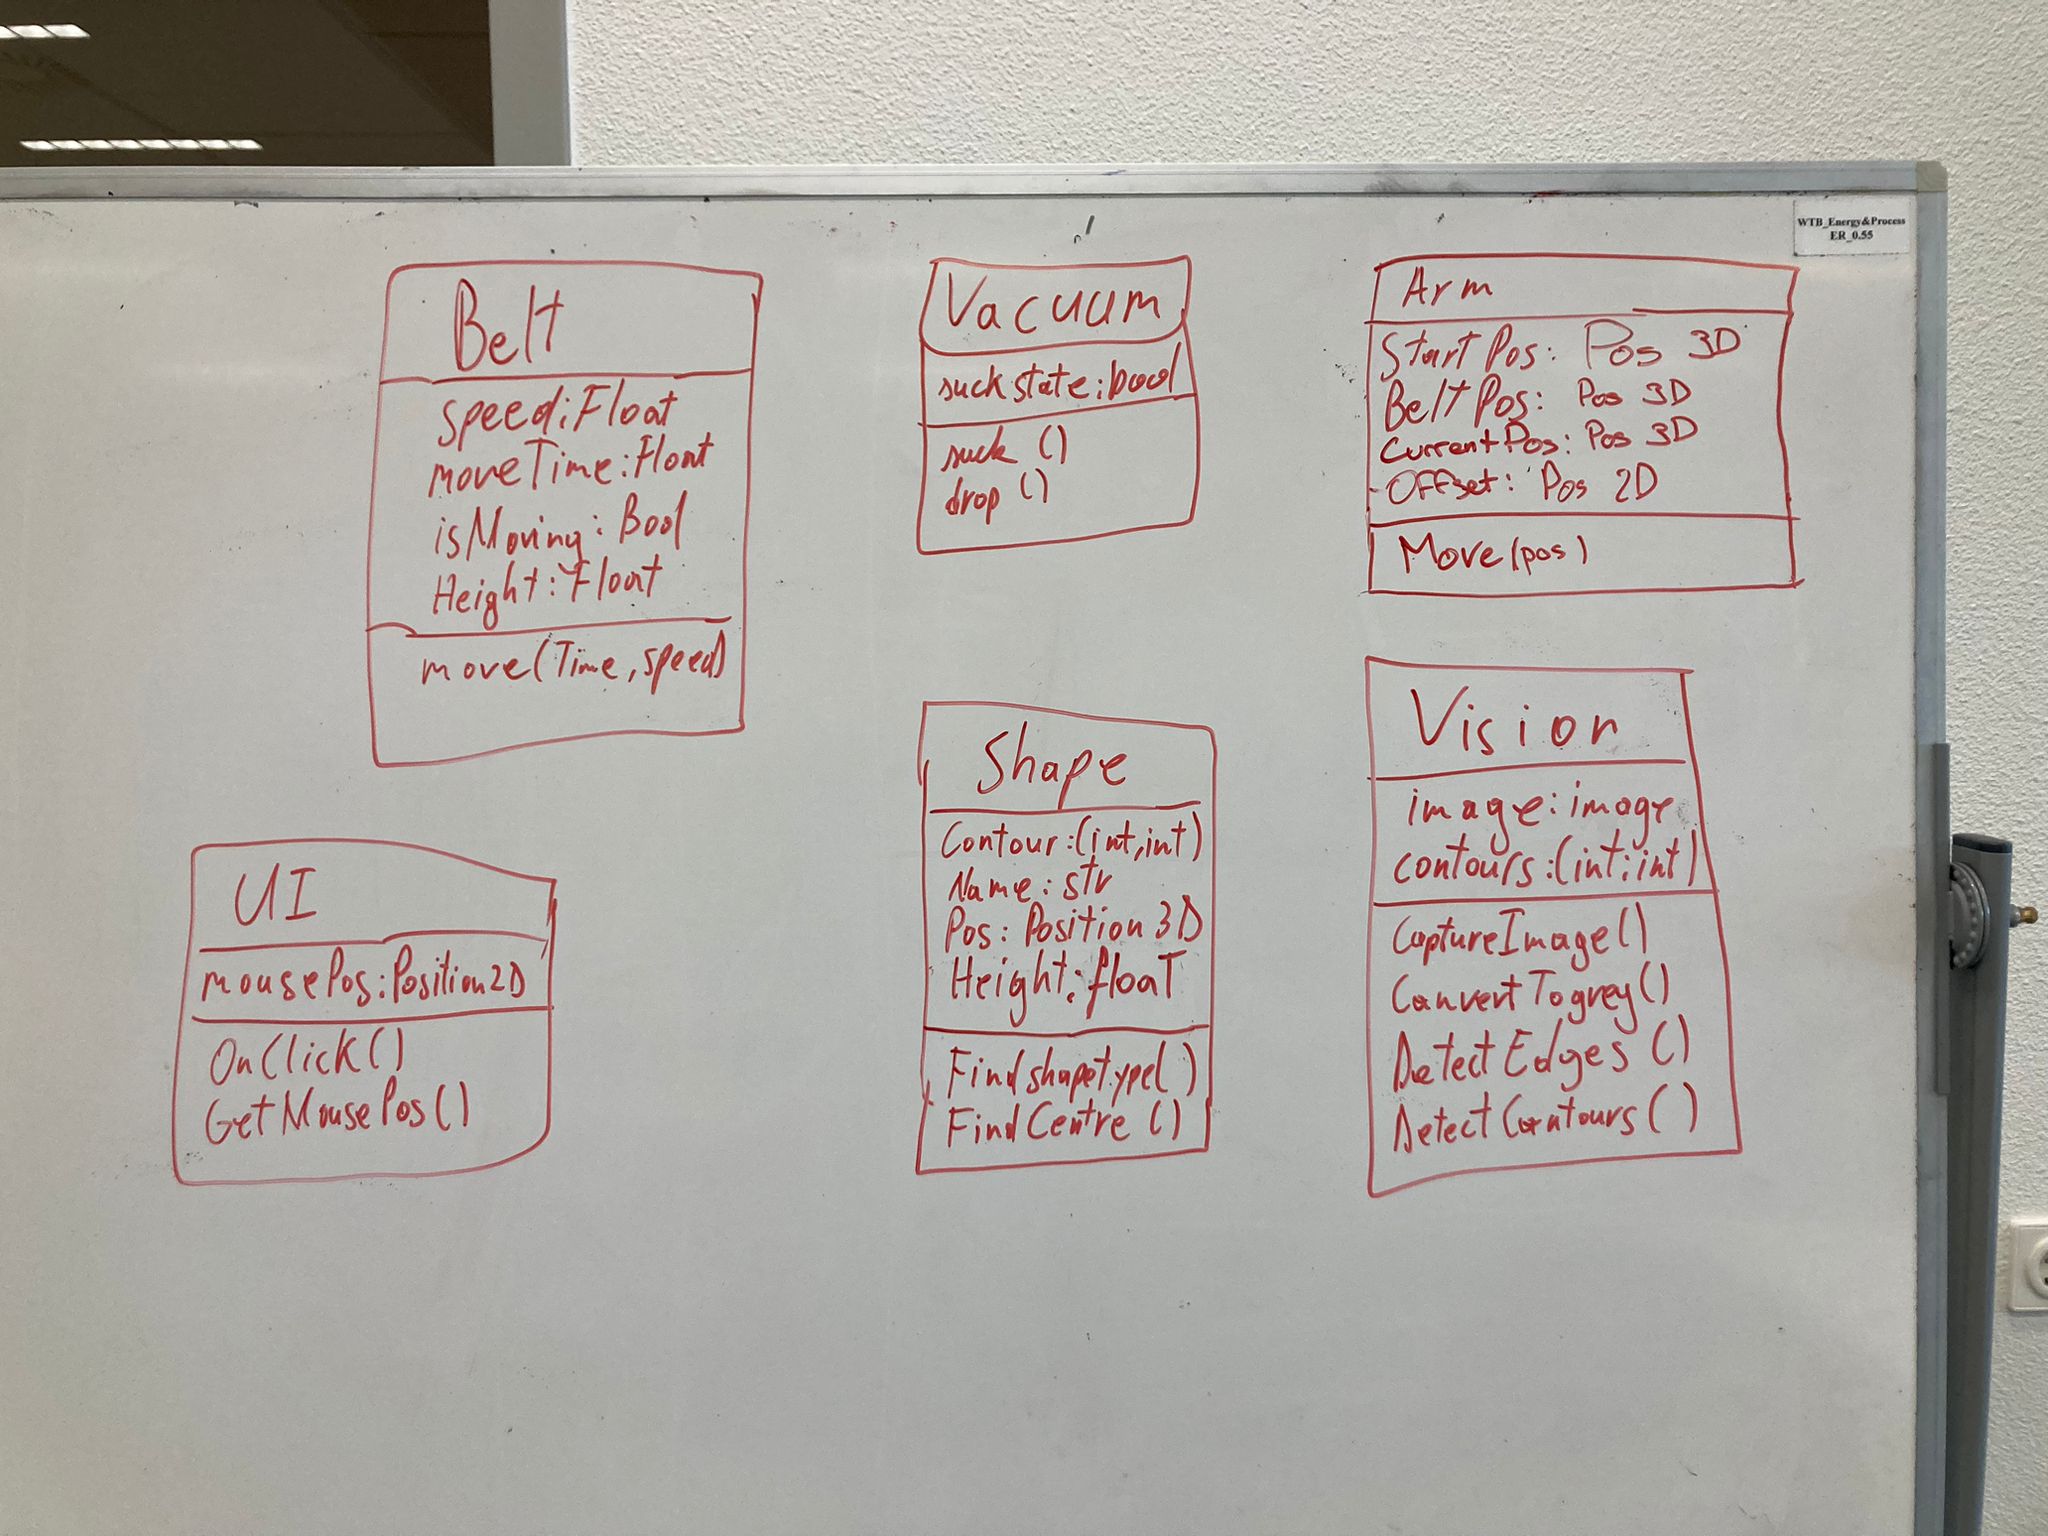 WTB_Energy&Process
ER_0.55
Belt
speed:Float
moveTime:Float
isMoving:Bool
Height:Float
move(Time,speed)
Vacuum
suckstate:bool
suck ()
drop ()
Arm
StartPos: Pos 3D
BeltPos: Pos 3D
CurrentPos: Pos 3D
Offset: Pos 2D
Move(pos)
UI
mousePos:Position2D
OnClick()
GetMousePos()
Shape
Contour:(int,int)
Name:str
Pos: Position3D
Height:float
Findshapetype()
FindCentre ()
Vision
image:image
contours:(int;int)
CaptureImage()
ConvertTogrey()
DetectEdges ()
DetectContours()